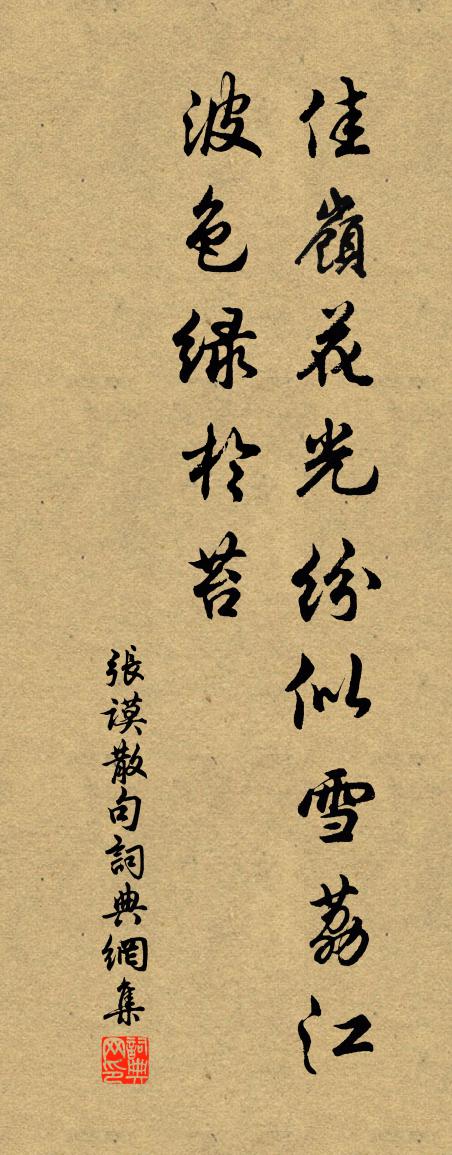 佳嶺花光紛似雪荔江
波色緑於苔
張謨散句詞典網集
詞典网印